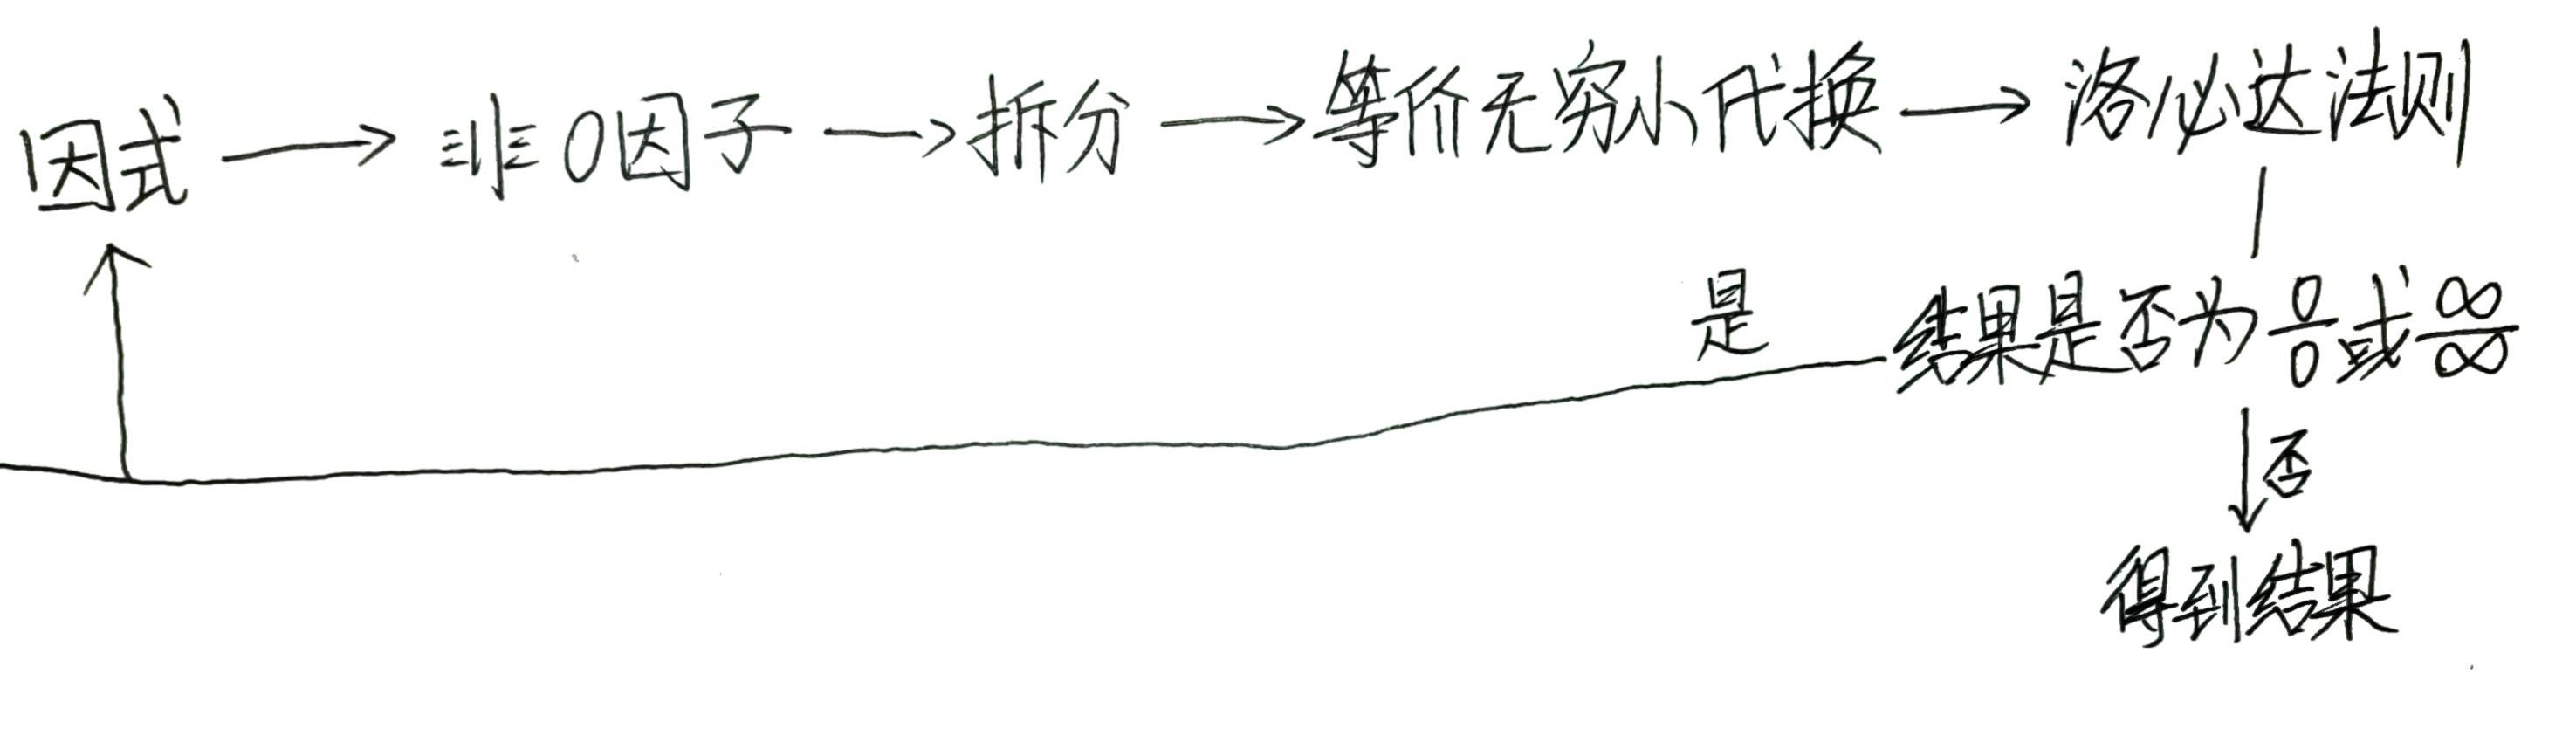 因式 → 非0因子 → 拆分 → 等价无穷小代换 → 洛必达法则
是 结果是否为 0/0 或 ∞/∞
否
得到结果